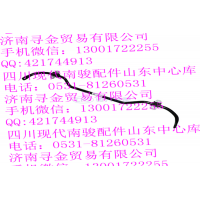 济南寻金贸易有限公司
手机微信：13001722255
QQ:421744913
四川现代南骏配件山东中心库
电话：0531-81260531
济南寻金贸易有限公司
手机微信：13001722255
QQ:421744913
四川现代南骏配件山东中心库
电话：0531-81260531